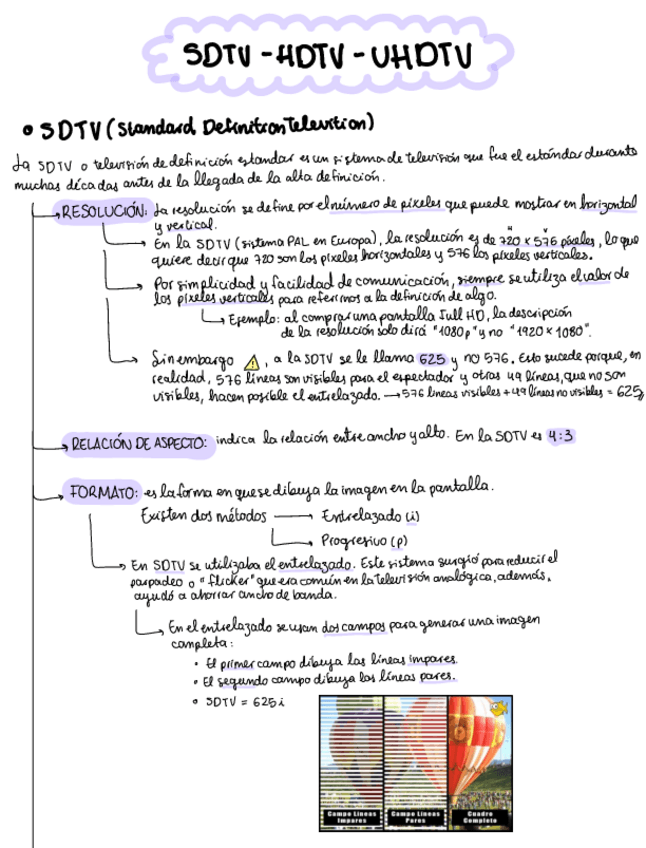 SDTV - HDTV - UHDTV
• SDTV (Standard Definition Televition)
La SDTV o televisión de definición estandar es un sistema de televisión que fue el estándar durante
muchas décadas antes de la llegada de la alta definición.
RESOLUCIÓN: La resolución se define por el número de píxeles que puede mostrar en horizontal
y vertical.
En la SDTV (sistema PAL en Europa), la resolución es de 720 x 576 píxeles, lo que
quiere decir que 720 son los píxeles horizontales y 576 los píxeles verticales.
Por simplicidad y facilidad de comunicación, siempre se utiliza el valor de
los píxeles verticales para referirnos a la definición de algo.
Ejemplo: al comprar una pantalla Full HD, la descripción
de la resolución solo dirá "1080p" y no "1920 x 1080".
Sin embargo ⚠, a la SDTV se le llama 625 y no 576. Esto sucede porque, en
realidad, 576 líneas son visibles para el espectador y otras 49 líneas, que no son
visibles, hacen posible el entrelazado. → 576 líneas visibles + 49 líneas no visibles = 625
RELACIÓN DE ASPECTO: indica la relación entre ancho y alto. En la SDTV es 4:3
FORMATO: es la forma en que se dibuja la imagen en la pantalla.
Existen dos métodos → Entrelazado (i)
Progresivo (p)
En SDTV se utilizaba el entrelazado. Este sistema surgió para reducir el
parpadeo o "flicker" que era común en la televisión analógica, además,
ayudó a ahorrar ancho de banda.
En el entrelazado se usan dos campos para generar una imagen
completa:
• El primer campo dibuja las líneas impares.
• El segundo campo dibuja las líneas pares.
• SDTV = 625i
Campo Líneas Impares
Campo Líneas Pares
Cuadro Completo